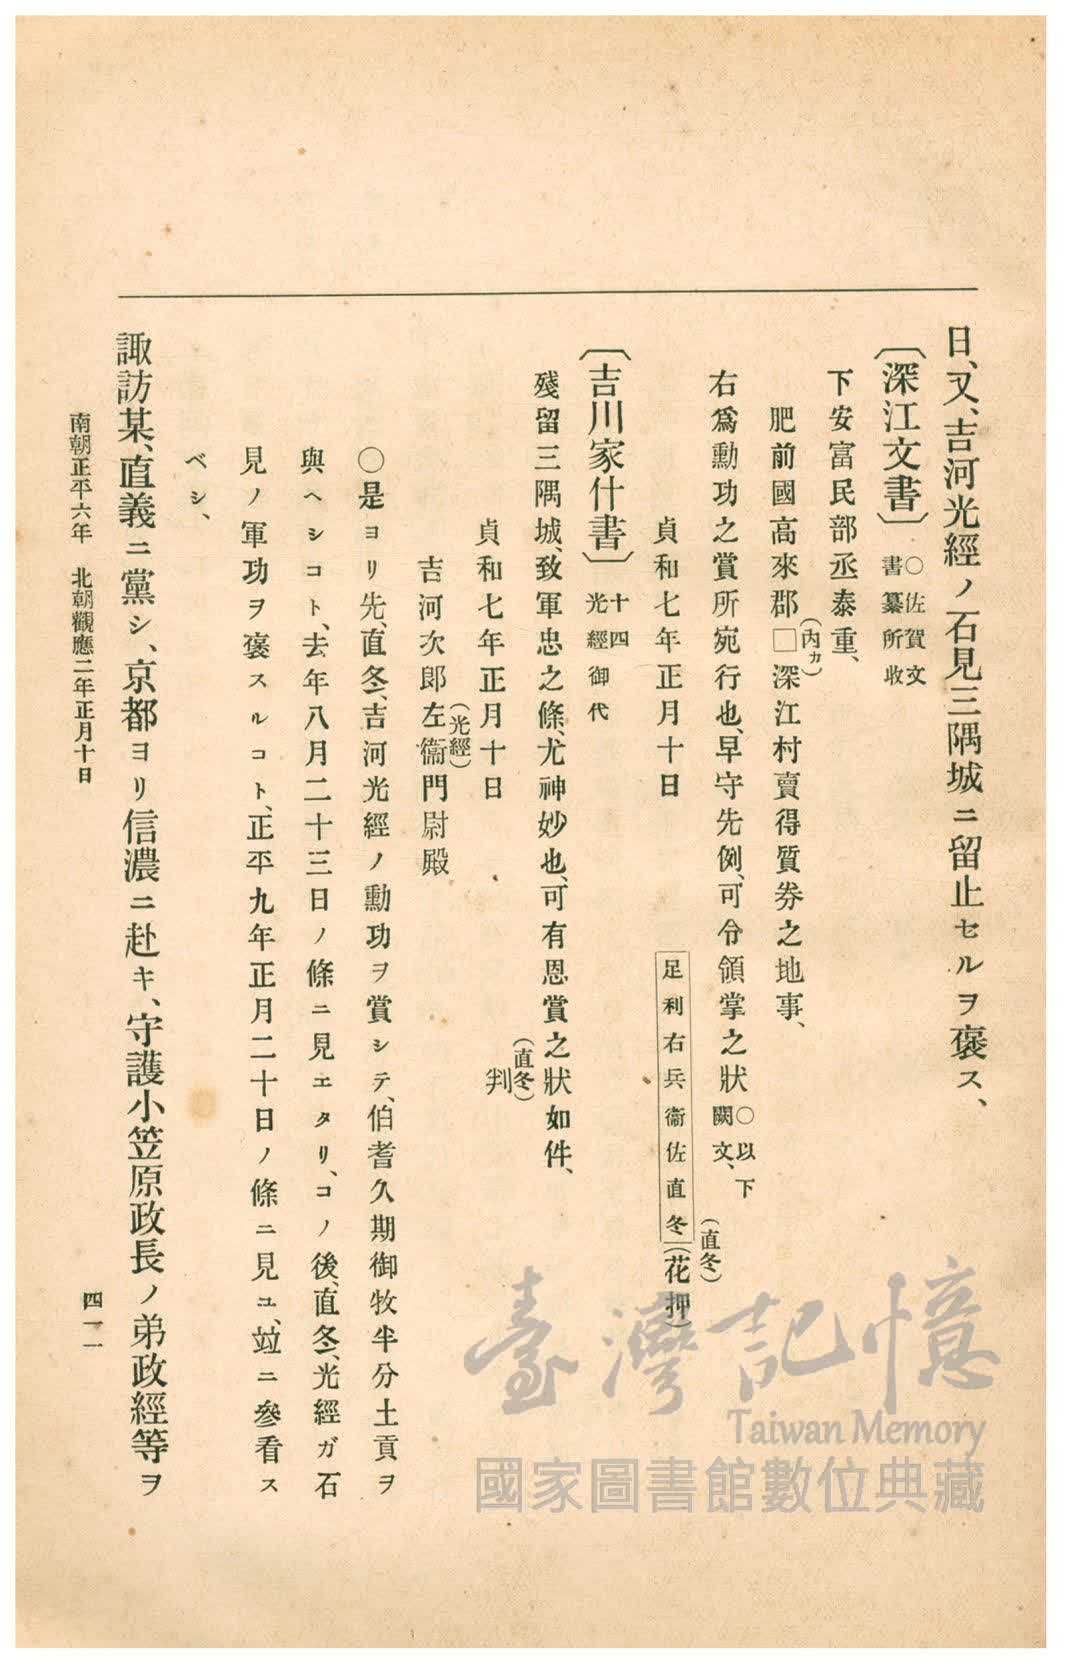 日、又、吉河光經ノ石見三隅城ニ留止セルヲ褒ス、
〔深江文書〕○佐賀文書纂所收
下安富民部丞泰重、
肥前國高來郡□(內カ)深江村賣得質券之地事、
右爲勳功之賞所宛行也、早守先例、可令領掌之狀○以下闕文、
貞和七年正月十日
足利右兵衞佐直冬(花押)
(直冬)
〔吉川家什書〕十四 光經御代
殘留三隅城、致軍忠之條、尤神妙也、可有恩賞之狀如件、
貞和七年正月十日
(直冬)
判
吉河次郎左衞門尉殿
(光經)
○是ヨリ先、直冬、吉河光經ノ勳功ヲ賞シテ、伯耆久期御牧半分土貢ヲ
與ヘシコト、去年八月二十三日ノ條ニ見エタリ、コノ後、直冬、光經ガ石
見ノ軍功ヲ褒スルコト、正平九年正月二十日ノ條ニ見ユ、竝ニ參看ス
ベシ、
諏訪某、直義ニ黨シ、京都ヨリ信濃ニ赴キ、守護小笠原政長ノ弟政經等ヲ
南朝正平六年 北朝觀應二年正月十日
四一一
臺灣記憶
Taiwan Memory
國家圖書館數位典藏